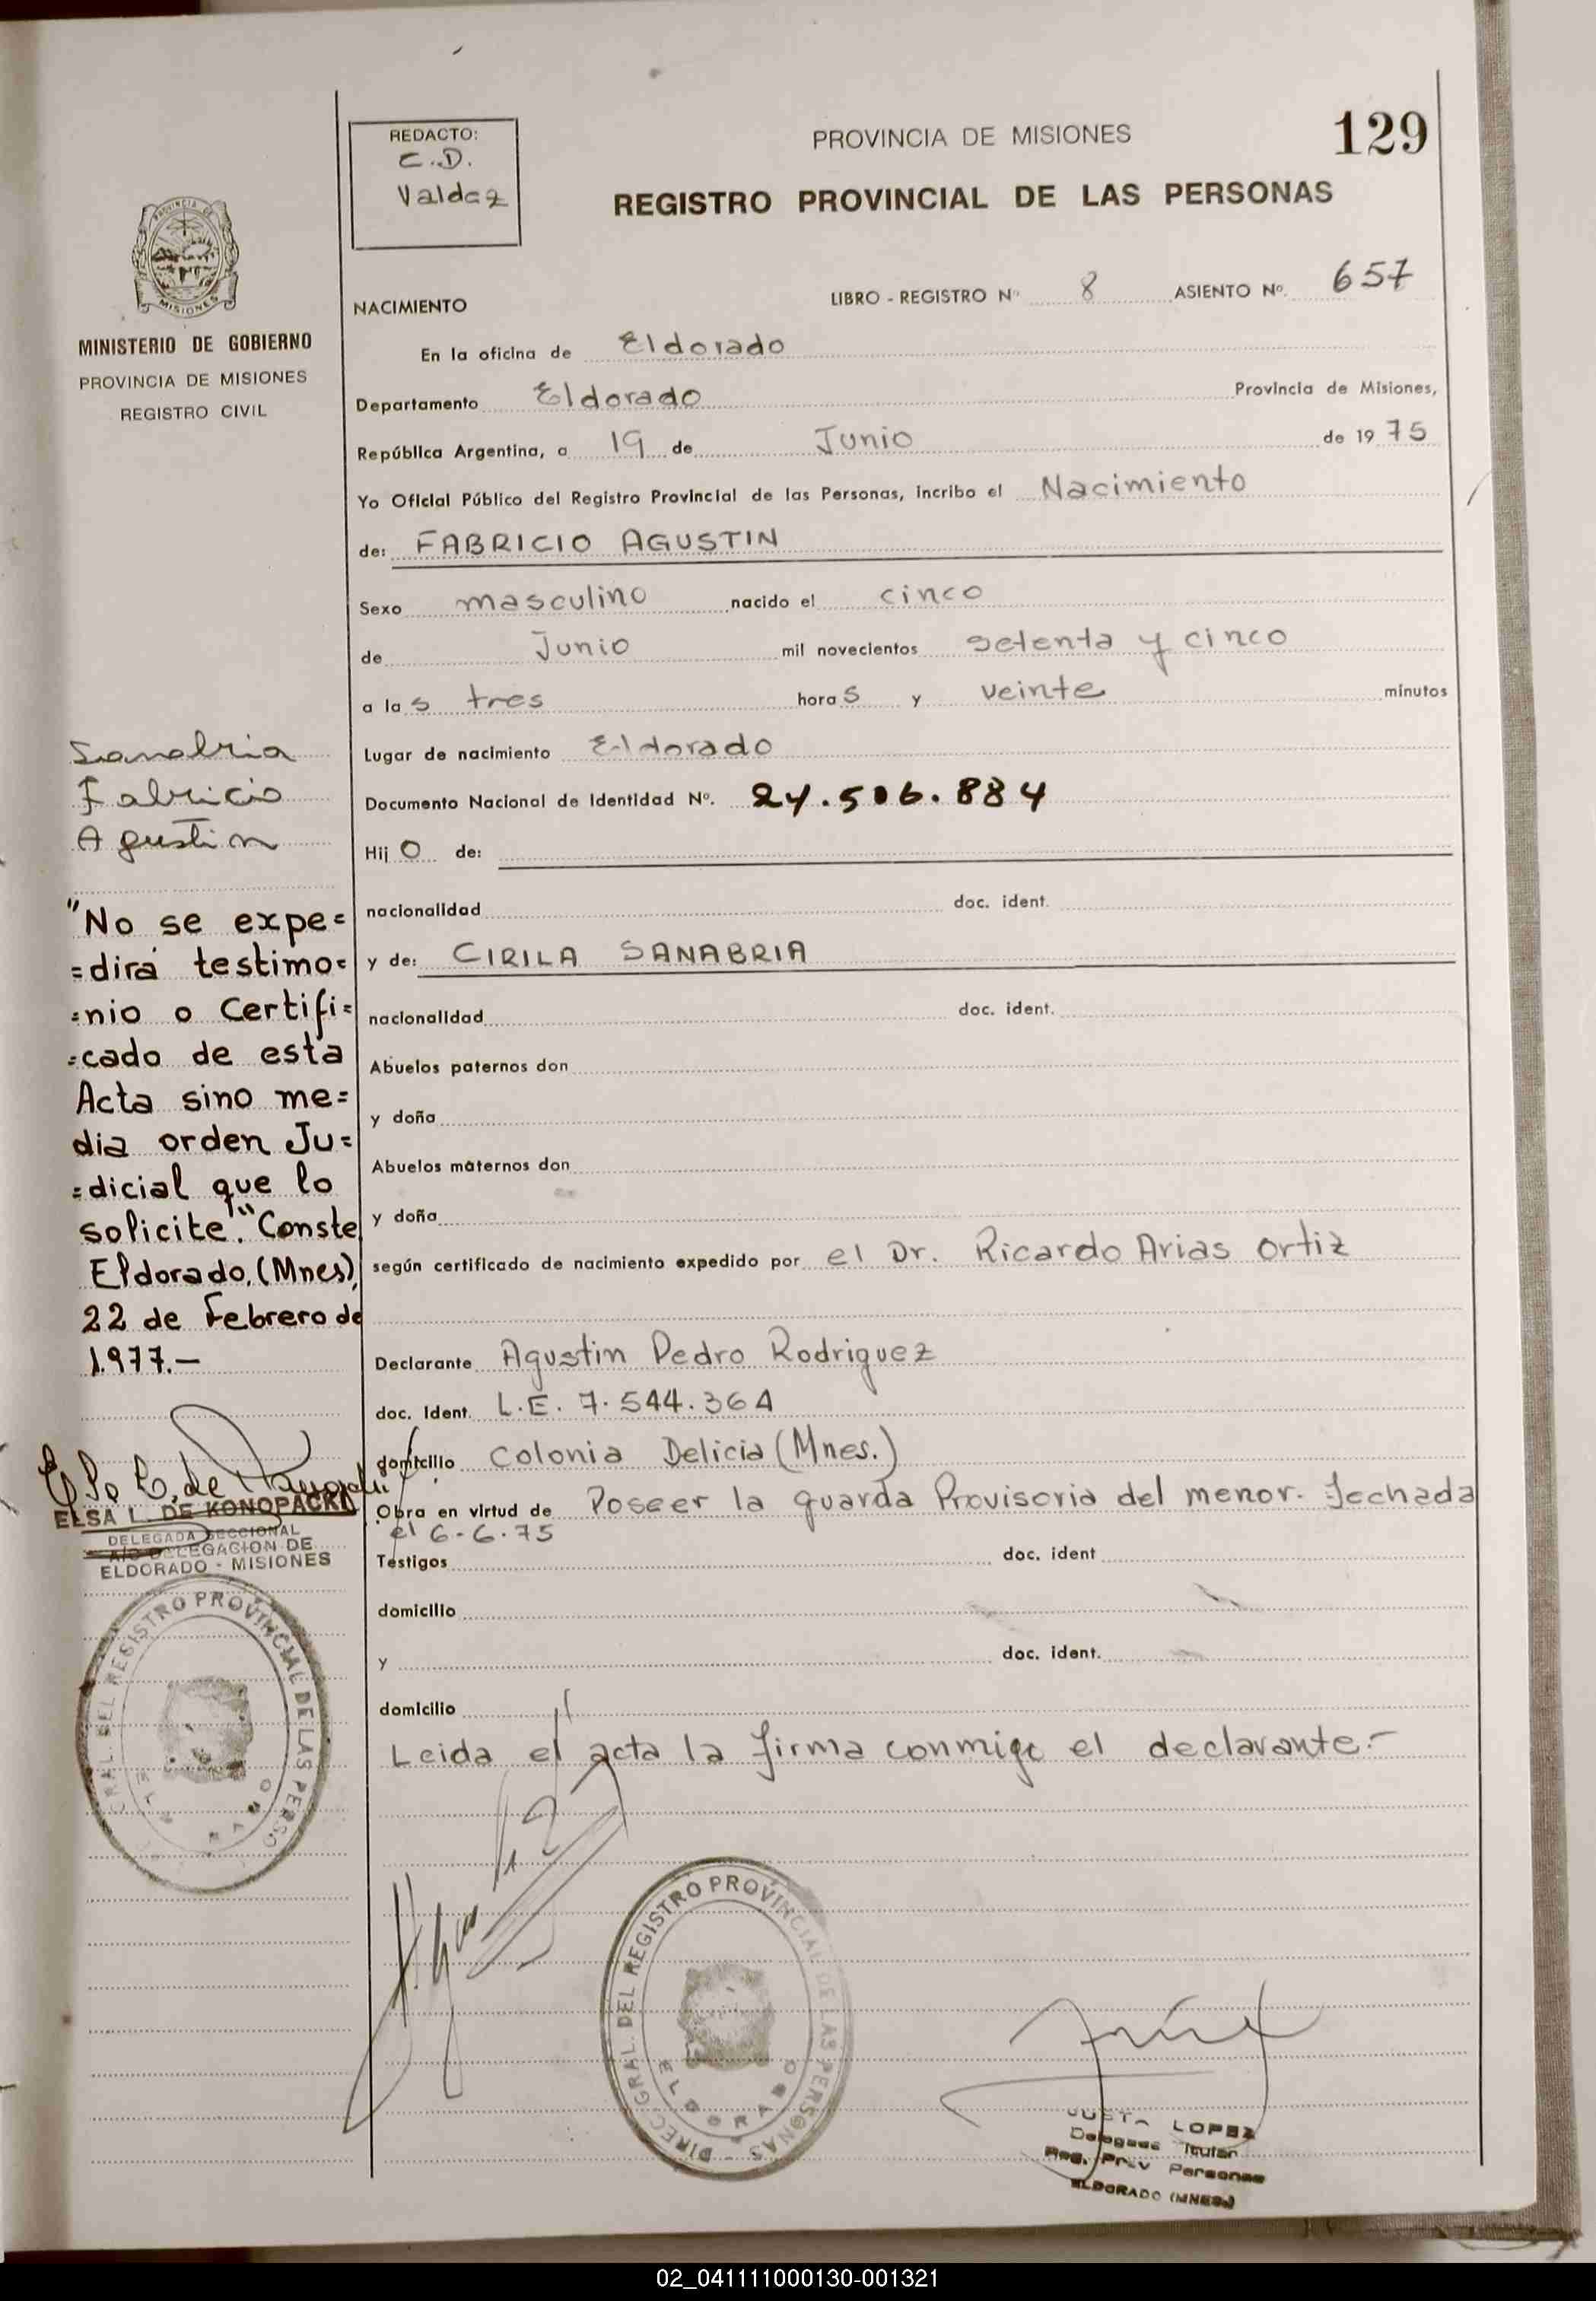 129
REDACTO:
C.D.
Valdez
PROVINCIA DE MISIONES
REGISTRO PROVINCIAL DE LAS PERSONAS
MINISTERIO DE GOBIERNO
PROVINCIA DE MISIONES
REGISTRO CIVIL
NACIMIENTO
LIBRO - REGISTRO Nº 8 ASIENTO Nº. 657
En la oficina de Eldorado
Departamento Eldorado Provincia de Misiones,
República Argentina, a 19 de Junio de 1975
Yo Oficial Público del Registro Provincial de las Personas, incribo el Nacimiento
de: FABRICIO AGUSTIN
Sexo masculino nacido el cinco
de Junio mil novecientos setenta y cinco
a las tres horas y veinte minutos
Lugar de nacimiento Eldorado
Documento Nacional de Identidad Nº. 24.506.884
Hijo de:
nacionalidad doc. ident.
y de: CIRILA SANABRIA
nacionalidad doc. ident.
Abuelos paternos don
y doña
Abuelos maternos don
y doña
según certificado de nacimiento expedido por el Dr. Ricardo Arias Ortiz
Declarante Agustin Pedro Rodriguez
doc. Ident. L.E. 7.544.364
domicilio Colonia Delicia (Mnes.)
Obra en virtud de Poseer la guarda Provisoria del menor. fechada
el 6-6-75
Testigos doc. ident
domicilio
y doc. ident.
domicilio
Leida el acta la firma conmigo el declarante.-
Sanabria
Fabricio
Agustin
"No se expe=
=dirá testimo=
=nio o Certifi=
=cado de esta
Acta sino me=
dia orden Ju=
=dicial que lo
solicite." Conste
Eldorado, (Mnes),
22 de Febrero de
1.977.-
ELSA L. DE KONOPACKI
DELEGADA SECCIONAL
A/C DELEGACION DE
ELDORADO - MISIONES
GRAL. DEL REGISTRO PROVINCIAL DE LAS PERSO
DIREC. GRAL. DEL REGISTRO PROVINCIAL DE LAS PERSONAS
ELDORADO
JUSTA LOPEZ
Delegada Titular
Reg. Prov Personas
ELDORADO (MNES.)
02_041111000130-001321